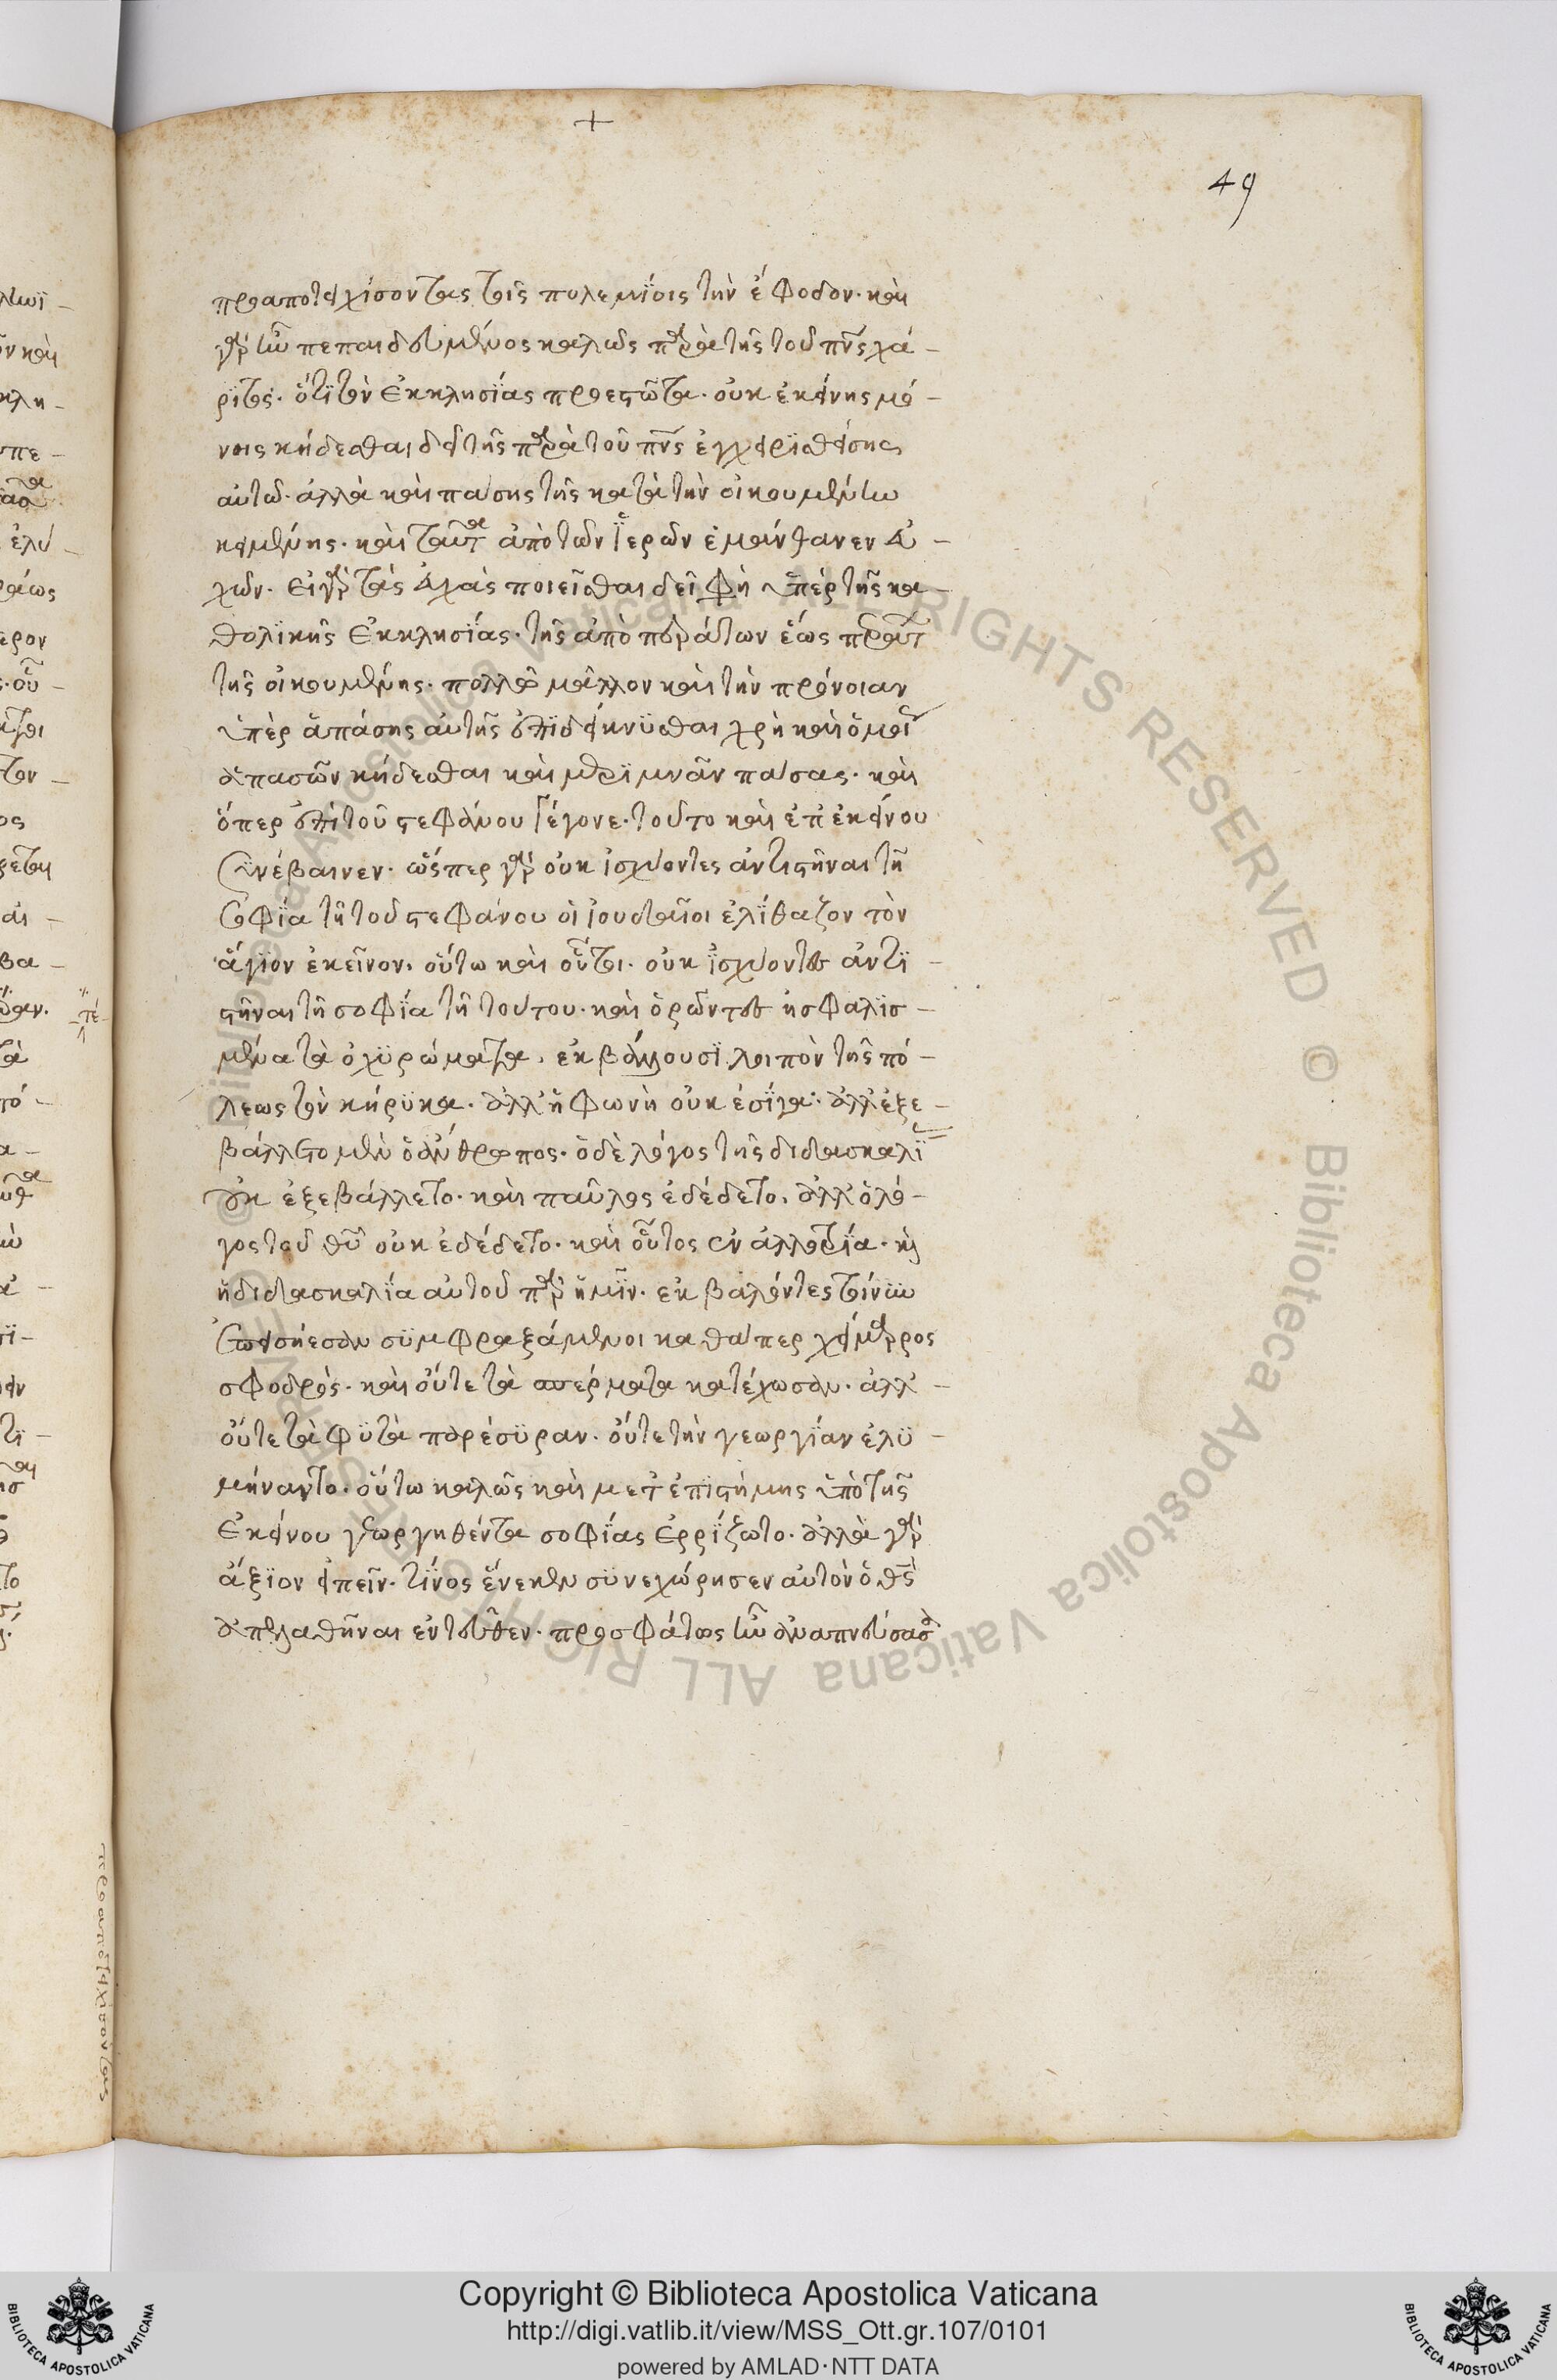 +
49
προαποτειχίσοντας τοῖς πολεμΐοις τὴν ἔφοδον. καὶ
γὰρ ἦν πεπαιδευμένος καλῶς παρὰ τῆς τοῦ πνς χά-
ρϊτος. ὅτϊ τὸν ἐκκλησϊας προεστῶτα. οὐκ ἐκείνης μό-
νοις κήδεσθαι δεῖ τῆς παρὰ τοῦ πνς ἐγχειρϊσθείσης
αὐτῶ. ἀλλὰ καὶ πάσης τῆς κατὰ τὴν οἰκουμένην
κειμένης. καὶ ταῦτα ἀπὸ τῶν ϊερῶν ἐμάνθανεν εὐ-
χῶν. εἰ γὰρ τὰς εὐχὰς ποιεῖσθαι δεῖ φη ὑπὲρ τῆς κα-
θολϊκῆς ἐκκλησϊας. τῆς ἀπὸ περάτων ἕως περάτ
τῆς οἰκουμένης. πολλῶ μᾶλλον καὶ τὴν πρόνοιαν
ὑπὲρ ἁπάσης αὐτῆς ἐπϊδείκνϋσθαι χρὴ καὶ ὁμοῦ
ἁπασῶν κήδεσθαι καὶ μερϊμνᾶν πάσας. καὶ
ὅπερ ἐπὶ τοῦ στεφάνου γέγονε. τοῦτο καὶ ἐπ ἐκείνου
συνέβαινεν. ὥσπερ γὰρ οὐκ ἰσχύοντες ἀντιστῆναι τῆ
σοφϊα τῆ τοῦ στεφάνου οἱ ἰουδαῖοι ἐλϊθαζον τὸν
ἅγϊον ἐκεῖνον. οὕτω καὶ οὗτοι. οὐκ ϊσχύοντες ἀντϊ-
στῆναι τῆ σοφϊα τῆ τούτου. καὶ ὁρῶντες ἠσφαλϊσ-
μένα τὰ ὀχϋρώματα. ἐκβάλλουσϊ λοιπὸν τῆς πό-
λεως τὸν κήρϋκα. ἀλλ ἡ φωνὴ οὐκ ἐσϊγα. ἀλλ ἐξε-
βάλλετο μὲν ὁ ἄνθρωπος. ὁ δὲ λόγος τῆς διδασκαλϊ
οὐκ ἐξεβάλλετο. καὶ παῦλος ἐδέδετο. ἀλλ ὁ λό-
γος τοῦ θῦ οὐκ ἐδέδετο. καὶ οὗτος ἐν ἀλλοτρϊα. κὶ
ἡ διδασκαλϊα αὐτοῦ παρ ἡμῖν. ἐκβαλόντες τοίνυν
ἐπεισήεσαν σϋμφραξάμενοι καθάπερ χείμαρρος
σφοδρός. καὶ οὔτε τὰ σπέρματα κατέχωσαν. ἀλλ-
οὔτε τὰ φϋτὰ παρέσϋραν. οὔτε τὴν γεωργϊαν ἐλϋ-
μήναντο. οὕτω καλῶς καὶ μετ ἐπιστήμης ὑπὸ τῆς
ἐκείνου γεωργηθέντα σοφϊας ἐρρίζωτο. ἀλλὰ γὰρ
ἄξϊον εἰπεῖν. τϊνος ἕνεκεν σϋνεχώρησεν αὐτὸν ὁ θς
ἀπελαθῆναι ἐντεῦθεν. προσφάτως ἦν ἀναπνεύσασ
Copyright © Biblioteca Apostolica Vaticana
http://digi.vatlib.it/view/MSS_Ott.gr.107/0101
powered by AMLAD·NTT DATA
BIBLIOTECA APOSTOLICA VATICANA
BIBLIOTECA APOSTOLICA VATICANA
© Biblioteca Apostolica Vaticana ALL RIGHTS RESERVED © Biblioteca Apostolica Vaticana ALL RIGHTS RESERVED